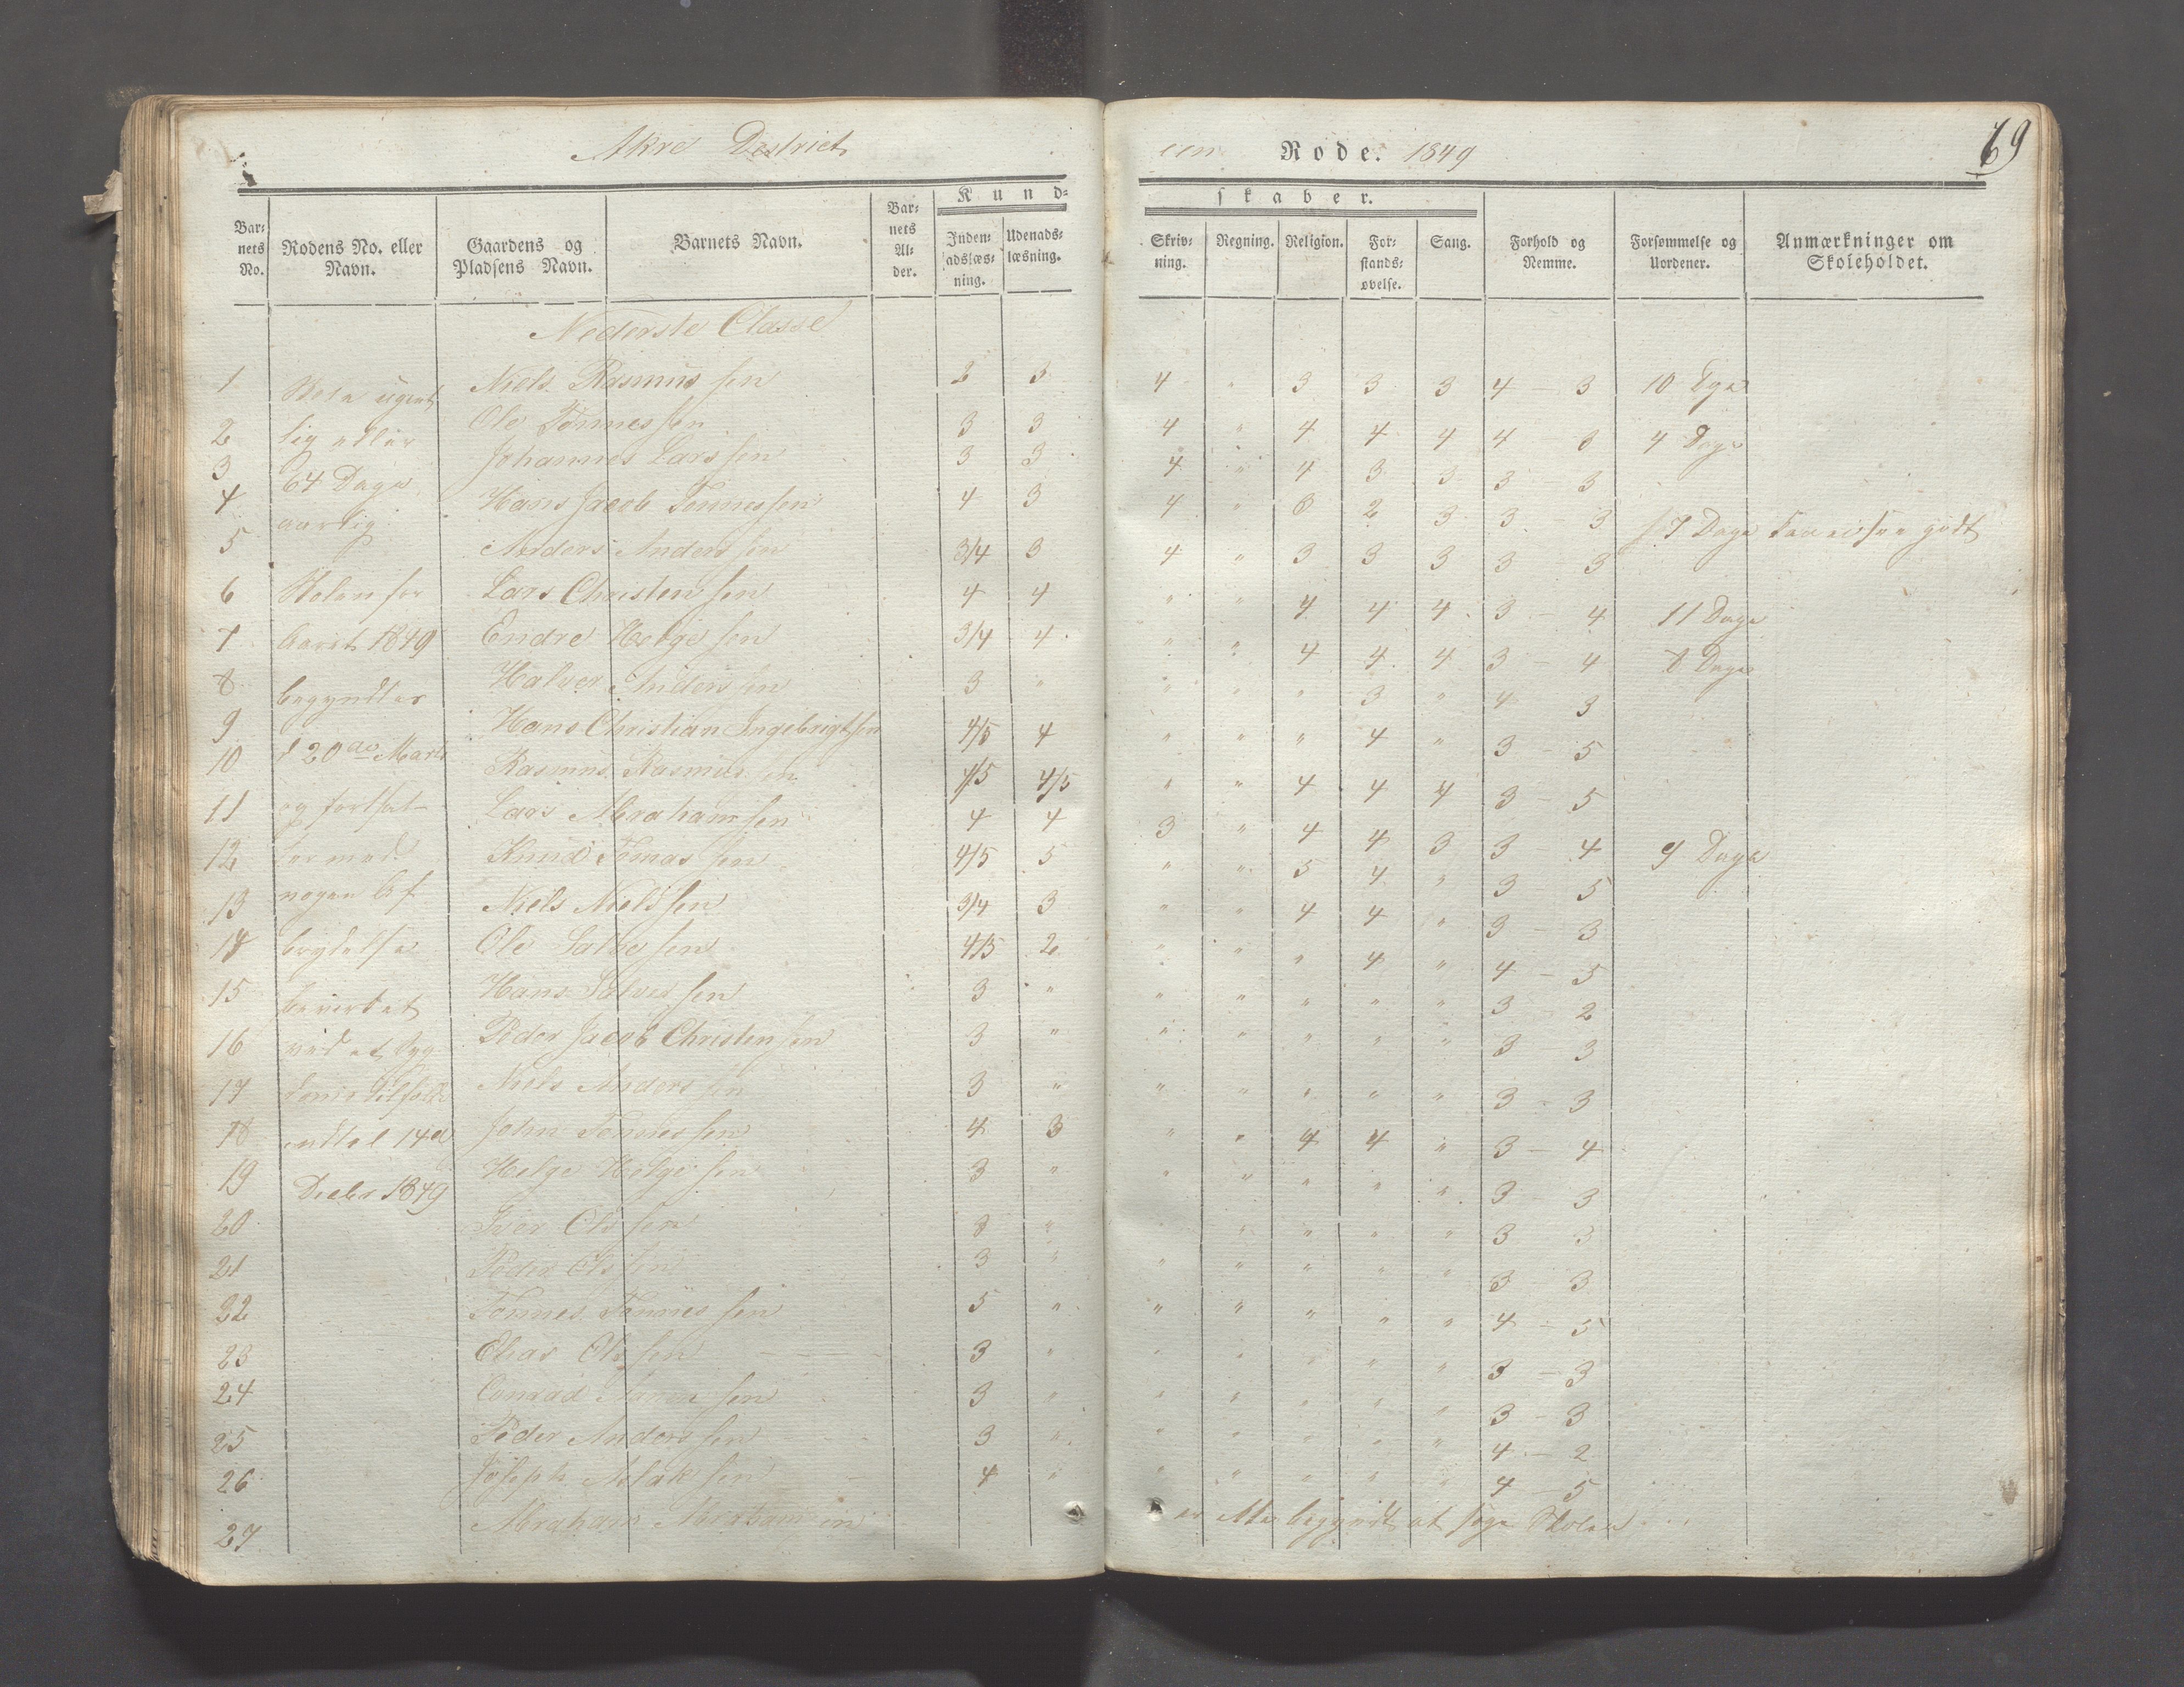 Akre District een Rode. 1849 69
Kund- skaber.
Bar- nets No. Rodens No. eller Navn. Gaardens og Pladsens Navn. Barnets Navn. Bar- nets Al- der. Inden- adslæs- ning. Udenads- læsning. Skriv- ning. Regning. Religion. For- stands- øvelse. Sang. Forhold og Nemme. Forsømmelse og Uordener. Anmærkninger om Skoleholdet.
Nederste Classe
1 Niels Rasmussen 3 3 4 " 3 3 3 4 - 3 10 Dga
2 Ole Tønnessen 3 3 4 " 4 4 4 4 - 3 4 Dage
3 Johannes Larssen 3 3 4 " 4 3 3 3 - 3
4 64 Dage Hans Jacob Tønnessen 4 3 4 " 3 2 3 3 - 3
5 aarlig Anders Anderssen 3/4 3 4 " 3 3 3 3 3 17 Dage godt
6 Skolen for Lars Christensen 4 4 " " 4 4 4 3 - 4 11 Dage
7 Aaret 1849 Endre Helgesen 3/4 4 " " 4 4 4 3 - 4 8 Dage
8 begyndtes Halvor Anderssen 3 " " " " 3 " 4 3
9 d 20de Marts Hans Christian Ingebrigtsen 4/5 4 " " " 4 " 3 - 5
10 Rasmus Rasmussen 4/5 4/5 " " 4 4 4 3 - 5
11 og fortsat- Lars Abrahamsen 4 4 3 " 4 4 3 3 - 4 9 Dage
12 tes med Knud Tomassen 4/5 5 " " 5 4 " 3 5
13 nogen Af Niels Nielssen 3/4 3 " " 4 4 " 3 - 3
14 brydelse Ole Salvesen 4/5 2 " " " 4 " 4 - 5
15 Hans Salvessen 3 " " " " " " 3 - 2
16 ved et Syg Peder Jacob Christensen 3 " " " " " " 3 3
17 doms Tilfælde Niels Anderssen 3 " " " " " " 3 - 3
18 indtil 14de John Tønnessen 4 3 " " 4 4 " 3 - 4
19 Decbr 1849 Helge Helgesen 3 " " " " " " 3 - 3
20 Iver Olssen 3 " " " " " 3 3
21 Peder Olssen 3 " " " " " " 3 - 3
22 Tønnes Tønnessen 5 " " " " " " 4 - 5
23 Elias Olssen 3 " " " " " " 3 - 3
24 Conrad 3 " " " " " " 3 - 3
25 Peder Anderssen 3 " " " " " " 4 - 2
26 Joseph Aslaksen 4 " " " " " " 4 - 5
27 Abraham er begyndt at søge Skolen